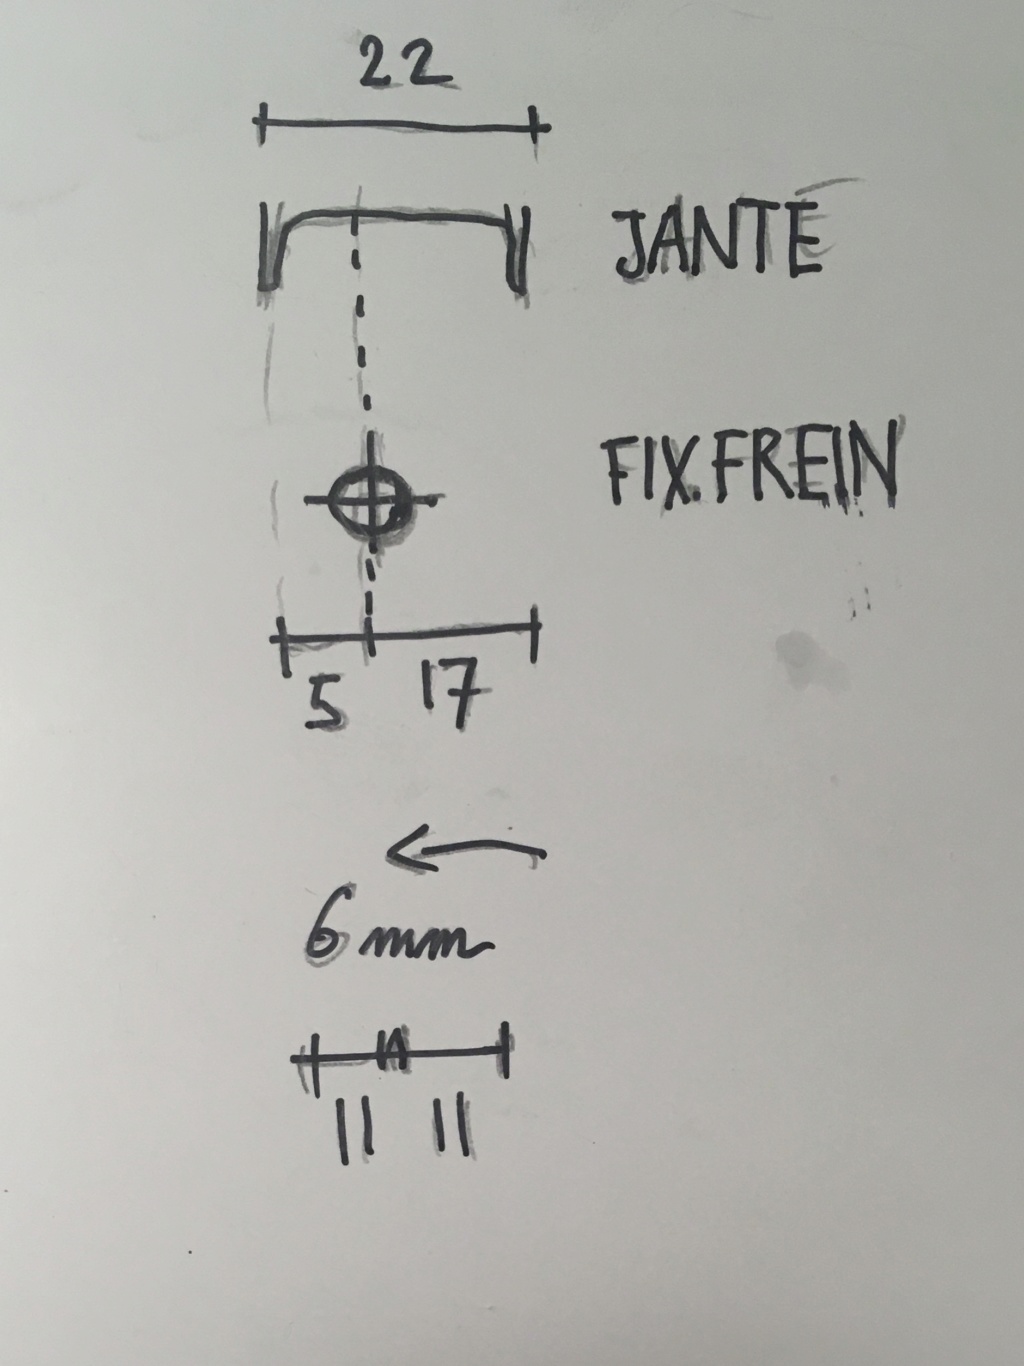 22
JANTE
FIX.FREIN
5 17
6 mm
11 11